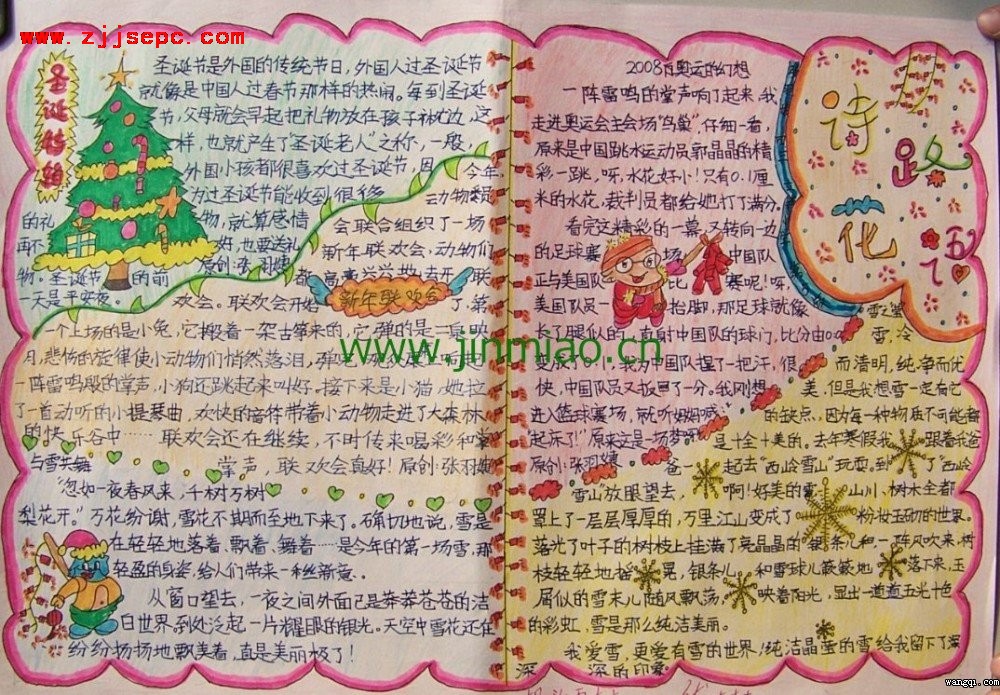 www.zjjsepc.com
圣诞特辑
圣诞节是外国的传统节日，外国人过圣诞节
就像是中国人过春节那样的热闹。每到圣诞
节，父母就会早起把礼物放在孩子枕边，这
样，也就产生了"圣诞老人"之称，一般，
外国小孩都很喜欢过圣诞节，因
为过圣诞节能收到很多
的礼物，就算感情
再不好，也要送礼
物。圣诞节的前
一天是平安夜。
原创:张羽婕
新年联欢会
今年，
动物委员
会联合组织了一场
新年联欢会，动物们
都高高兴兴地去开联
欢会。联欢会开始了，第
一个上场的是小兔，它搬着一架古筝来的，它弹的是二泉映
月，悲伤的旋律使小动物们悄然落泪，
一阵雷鸣般的掌声，小狗还跳起来叫好。接下来是小猫，她拉
了一首动听的小提琴曲，欢快的音符带着小动物走进了大森林
的快乐谷中……联欢会还在继续，不时传来喝彩和掌
声，联欢会真好！原创:张羽婕
www.jinmiao.cn
与雪共舞
"忽如一夜春风来，千树万树
梨花开。"万花纷谢，雪花不期而至地下来了。确切地说，雪是
在轻轻地落着、飘着、舞着……是今年的第一场雪，那
轻盈的身姿，给人们带来一丝丝新意。
从窗口望去，一夜之间外面已是莽莽苍苍的洁
白世界，到处泛起一片耀眼的银光。天空中雪花还在
纷纷扬扬地飘美着，真是美丽极了！
2008百奥运的幻想
一阵雷鸣的掌声响了起来，我
走进奥运会主会场"鸟巢"仔细一看，
原来是中国跳水运动员郭晶晶的精
彩一跳，呀，水花好小！只有0.1厘
米的水花，裁判员都给她打了满分。
看完这精彩的一幕，又转向一边
的足球赛场，中国队
正与美国队比赛呢！呀，
美国队员一抬脚，那足球就像
长了眼似的，直射中国队的球门，比分由0:0
变成，我为中国队捏了一把汗，很
快，中国队员又扳回了一分。我刚想
进入篮球赛场，就听妈妈喊
起床了！"原来这是一场梦呀
原创:张羽婕
诗路花语
雪之莹
雪，冷
而清明，纯净而优
美，但是我想雪一定有它
的缺点，因为每一种物质不可能都
是十全十美的。去年寒假我跟着我爸
爸一起去"西岭雪山"玩耍。到了"西岭
雪山"放眼望去，啊！好美的雪山川、树木全都
罩上了一层层厚厚的，万里江山变成了粉妆玉砌的世界。
落光了叶子的树枝上挂满了亮晶晶的银条儿和一阵风吹来，树
枝轻轻地摇晃，银条儿和雪球儿簌簌地落下来，玉
屑似的雪末儿随风飘荡，映着阳光，显出一道道五光十色
的彩虹，雪是那么纯洁美丽。
我爱雪，更爱有雪的世界！纯洁晶莹的雪给我留下了深
深的印象
wangqi.com